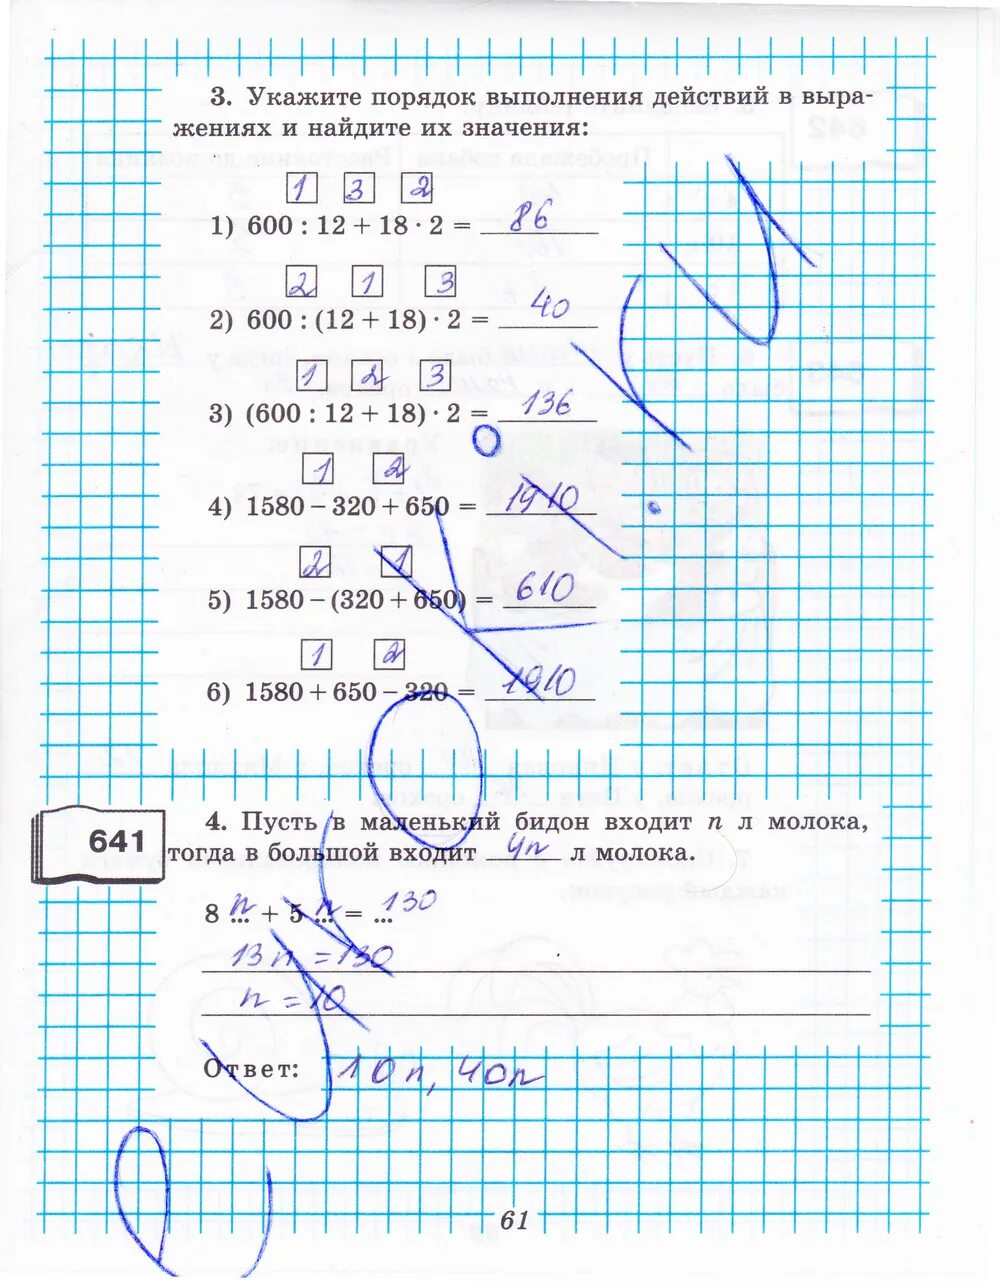 3. Укажите порядок выполнения действий в выра-
жениях и найдите их значения:
1 3 2
1) 600 : 12 + 18 · 2 = 86
2 1 3
2) 600 : (12 + 18) · 2 = 40
1 2 3
3) (600 : 12 + 18) · 2 = 136
1 2
4) 1580 – 320 + 650 = 1910
2 1
5) 1580 – (320 + 650) = 610
1 2
6) 1580 + 650 – 320 = 1910
641
4. Пусть в маленький бидон входит n л молока,
тогда в большой входит 4n л молока.
8 n + 5 n = 130
13n = 130
n = 10
Ответ: 10л, 40л
61